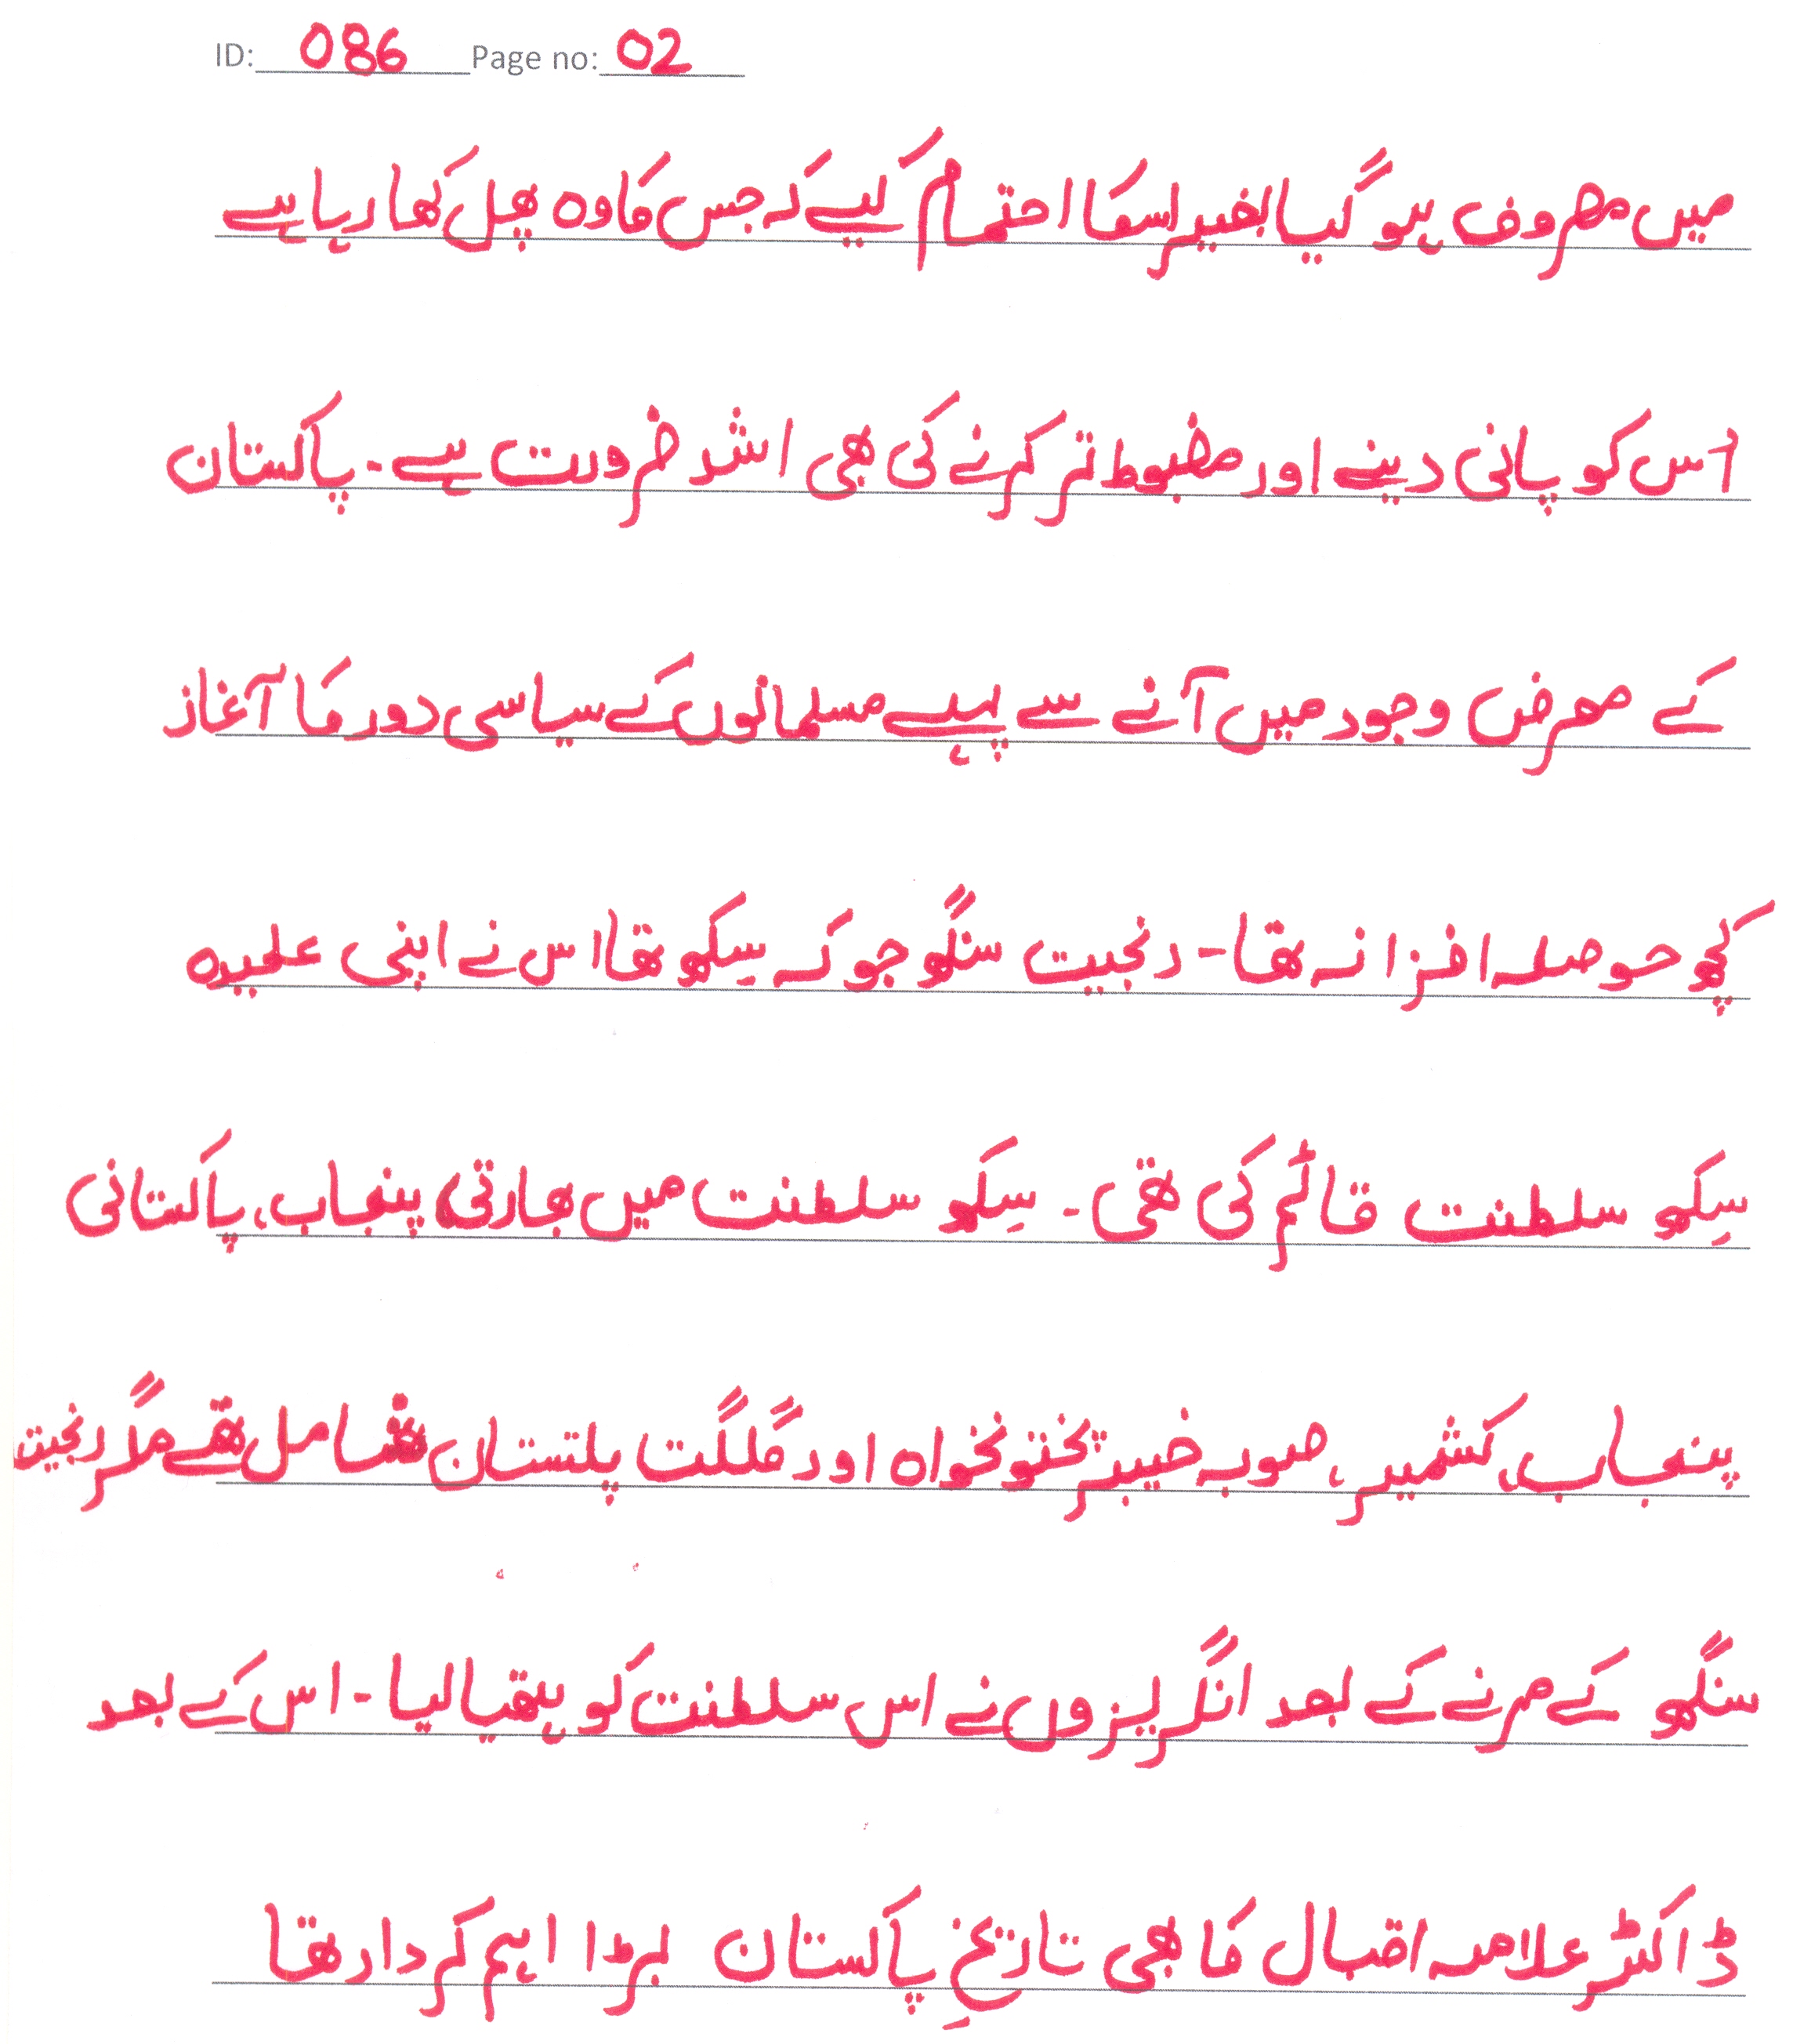 ID: 086 Page no: 02
میں مصروف ہو گیا بغیر اسکا احتمام کیے کہ جس کا وہ پھل کھا رہا ہے
اس کو پانی دینے اور مضبوط تر کرنے کی بھی اشد ضرورت ہے - پاکستان
کے معرض وجود میں آنے سے پہلے مسلمانوں کے سیاسی دور کا آغاز
کچھ حوصلہ افزا نہ تھا - رنجیت سنگھ جو کہ سِکھ تھا اس نے اپنی علحیدہ
سِکھ سلطنت قائم کی تھی - سِکھ سلطنت میں بھارتی پنجاب، پاکستانی
پنجاب، کشمیر، صوبہ خیبر پختونخواہ اور گلگت بلتستان شامل تھے مگر رنجیت
سنگھ کے مرنے کے بعد انگریزوں نے اس سلطنت کو ہتھیا لیا - اس کے بعد
ڈاکٹر علامہ اقبال کا بھی تاریخِ پاکستان بڑا اہم کردار تھا